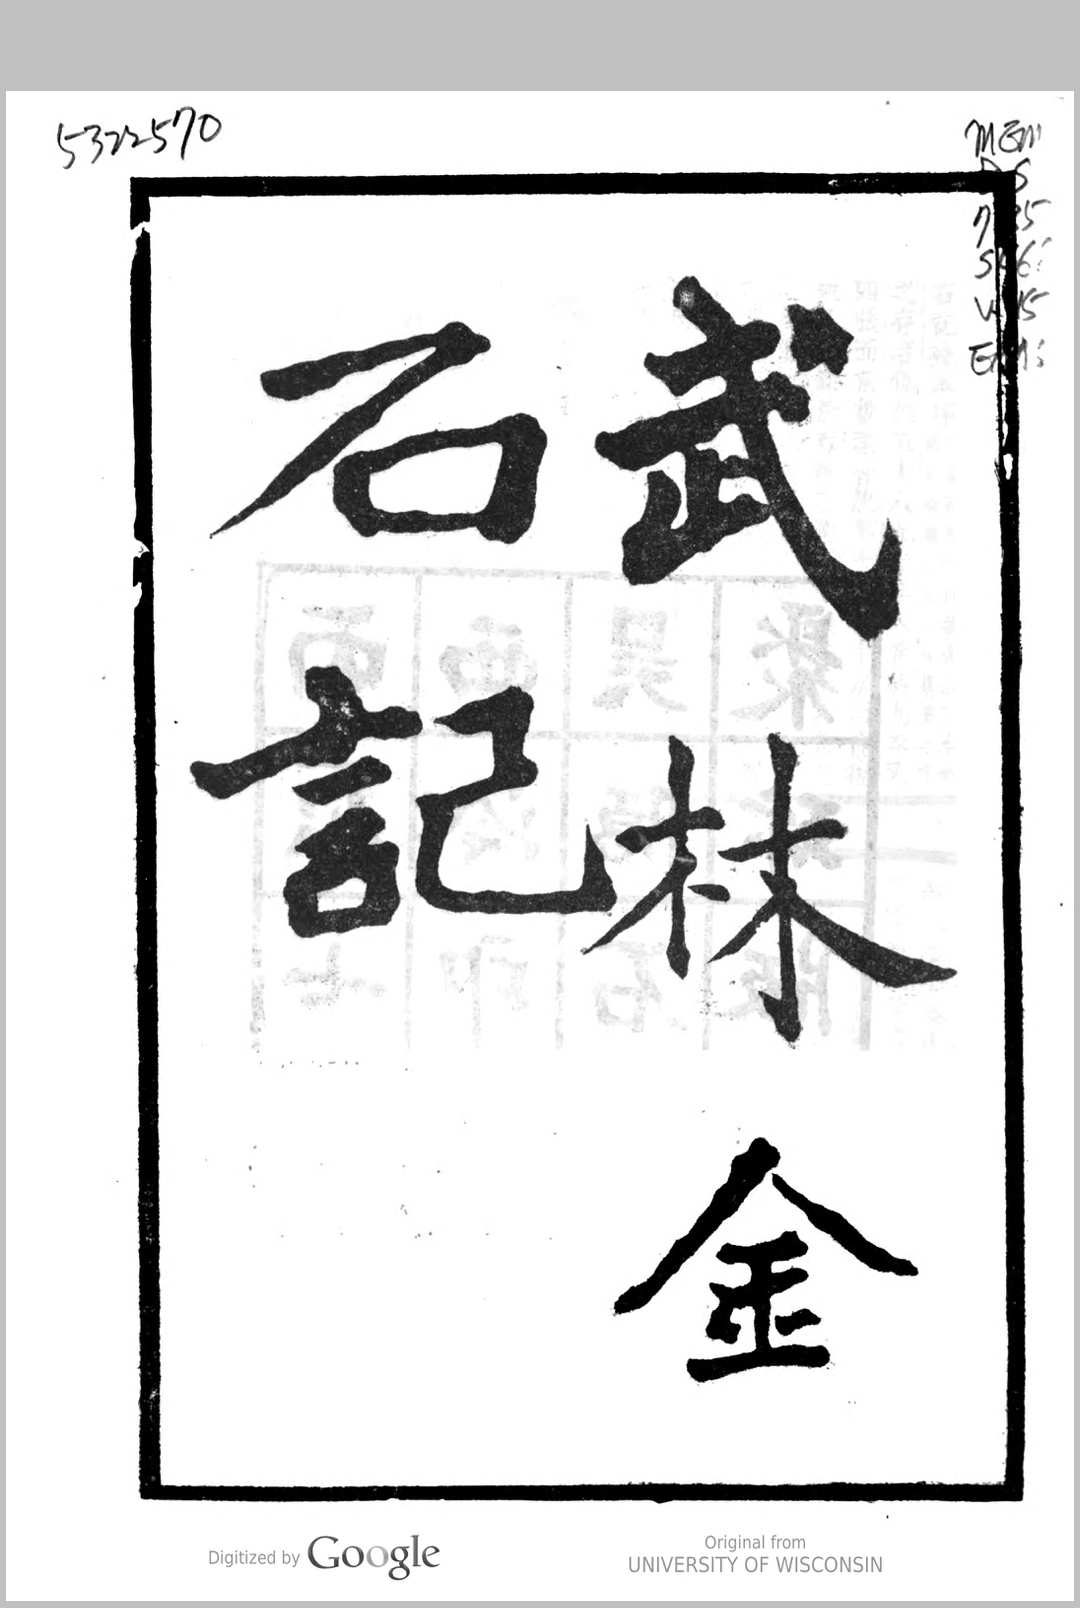 5322570
武林金
石記
Digitized by Google
Original from
UNIVERSITY OF WISCONSIN